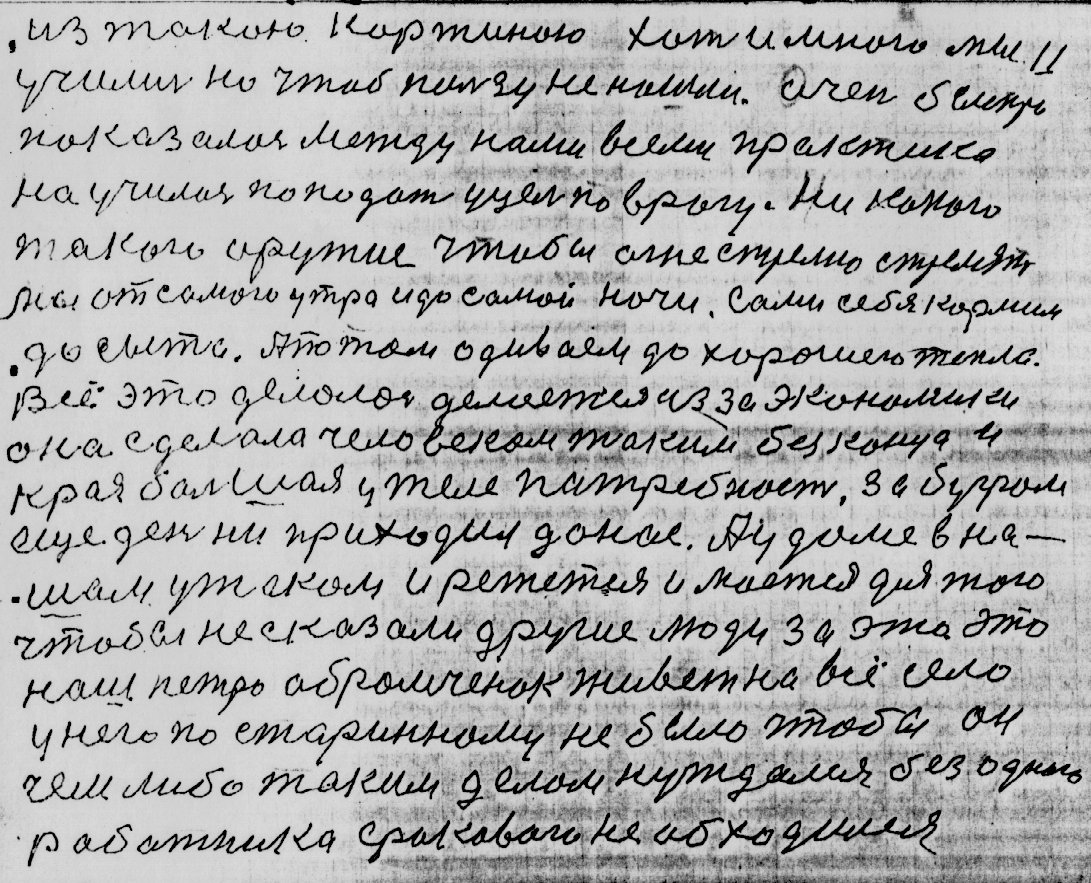 из такою картиною хот и много мы 11
училис но чтоб ползу не нашли. Очен быстро
показалос между нами всеми практика
научился поподат у цел по врагу. Ни какого
такого оружие чтобы огнестрелно стрелят
мы от самого утра и до самой ночи. Сами себя кормим
до сыта. А потом одиваем до хорошего тепла.
Всё это делалос делается из за экономики
она сделала человеком таким без конца и
края большая у теле патребност, за бугром
еще ден ни приходил до нас. А у доме в на-
шам у таком и режется и моется для того
чтобы не сказали другие люди за эта это
наш петро абрамченок живет на всё село
у него по старинному не было чтобы он
чем либо таким делом нуждался без одного
работника сраковаго не обходился